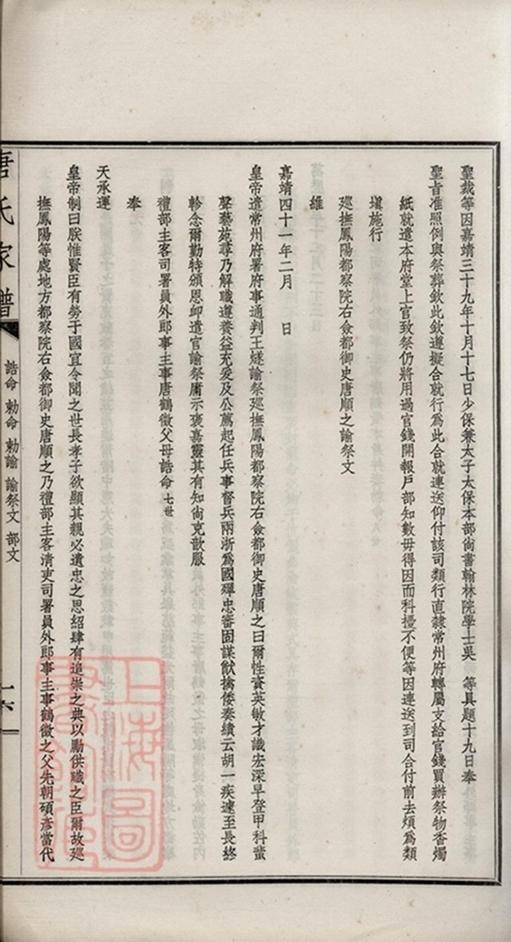 聖裁等因嘉靖三十九年十月十七日少保兼太子太保本部尚書翰林院學士吳　等具題十九日奉
聖旨准照例與祭葬欽此欽遵擬合就行為此合就連送仰付該司類行直隸常州府轉屬支給官錢買辦祭物香燭
紙就遣本府堂上官致祭仍將用過官錢開報戶部知數毋得因而科擾不便等因連送到司合付前去煩為類
填施行
廵撫鳳陽都察院右僉都御史唐順之諭祭文
維
嘉靖四十一年二月　日
皇帝遣常州府署府事通判王燧諭祭廵撫鳳陽都察院右僉都御史唐順之曰爾性資英敏才識宏深早登甲科蜚
聲藝苑尋乃解職遵養益充爰及公薦起任兵事督兵兩浙為國殫忠籌固謀猷擒倭奏績云胡一疾遽至長終
軫念爾勤特頒恩卹遣官諭祭庸示褒嘉靈其有知尚克歆服
禮部主客司署員外郎事主事唐鶴徵父母誥命七世
奉
天承運
皇帝制曰朕惟賢臣有勞于國宜令聞之世長孝子欲顯其親必遺忠之思紹肆有追崇之典以勵供職之臣爾故廵
撫鳳陽等處地方都察院右僉都御史唐順之乃禮部主客清吏司署員外郎事主事鶴徵之父先朝碩彥當代
唐氏家譜
誥命 勅命 勅諭 諭祭文 部文
十六
上海圖書館藏